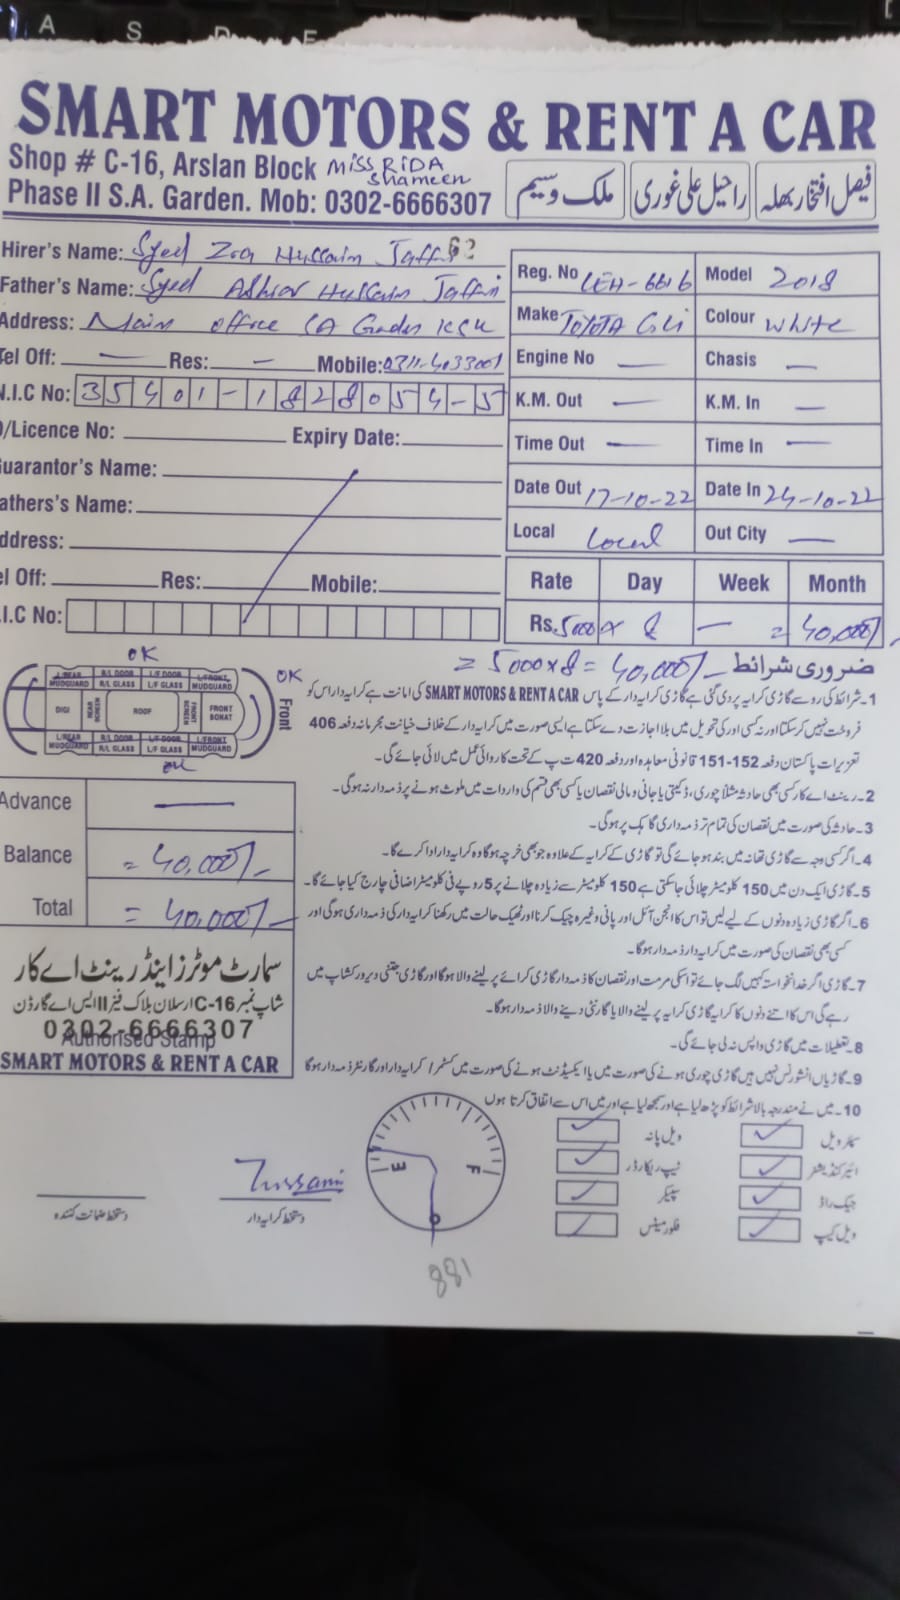 A S D F
SMART MOTORS & RENT A CAR
Shop # C-16, Arslan Block MISS RIDA Shameen
Phase II S.A. Garden. Mob: 0302-6666307
ملک وسیم راحیل علی غوری فیصل افتخار بھلہ
62
Hirer's Name: Syed Zia Hussain Jaffri
Father's Name: Syed Hussain Jaffri
Address: Main office SA Garden KSK
Tel Off: — Res: — Mobile: 0311-4033001
N.I.C No: 35401-1828054-5
D/Licence No: Expiry Date:
Guarantor's Name:
Fathers's Name:
Address:
Tel Off: Res: Mobile:
N.I.C No:
Reg. No LEH-6616 Model 2018
Make TOYOTA GLi Colour White
Engine No — Chasis —
K.M. Out — K.M. In —
Time Out — Time In —
Date Out 17-10-22 Date In 24-10-22
Local Local Out City —
Rate Day Week Month
Rs. 5000 x 8 — = 40,000/-
= 5000x8 = 40,000/- ضروری شرائط
OK
OK
L/REAR MUDGUARD R/L DOOR L/F DOOR L/FRONT MUDGUARD
R/L GLASS L/F GLASS
DIGI REAR SCREEN ROOF FRONT SCREEN FRONT BONAT Front
L/REAR MUDGUARD R/L DOOR L/F DOOR L/FRONT MUDGUARD
R/L GLASS L/F GLASS
OK
1۔شرائط کی رو سے گاڑی کرایہ پر دی گئی ہے گاڑی کرایہ دار کے پاس SMART MOTORS & RENT A CAR کی امانت ہے کرایہ دار اس کو
فروخت نہیں کر سکتا اور نہ کسی اور کی تحویل میں بلا اجازت دے سکتا ہے ایسی صورت میں کرایہ دار کے خلاف خیانت مجرمانہ دفعہ 406
تعزیرات پاکستان دفعہ 152-151 قانونی معاہدہ اور دفعہ 420 ت پ کے تحت کاروائی عمل میں لائی جائے گی۔
2۔رینٹ اے کار کسی بھی حادثہ مثلاً چوری، ڈکیتی یا جانی و مالی نقصان یا کسی بھی قسم کی واردات میں ملوث ہونے پر ذمہ دار نہ ہوگی۔
3۔حادثہ کی صورت میں نقصان کی تمام تر ذمہ داری گاہک پر ہوگی۔
4۔اگر کسی وجہ سے گاڑی تھانہ میں بند ہو جائے گی تو گاڑی کے کرایہ کے علاوہ جو بھی خرچہ ہوگا وہ کرایہ دار ادا کرے گا۔
5۔گاڑی ایک دن میں 150 کلومیٹر چلائی جا سکتی ہے 150 کلومیٹر سے زیادہ چلانے پر 5 روپے فی کلومیٹر اضافی چارج کیا جائے گا۔
6۔اگر گاڑی زیادہ دنوں کے لیے لیں تو اس کا انجن آئل اور پانی وغیرہ چیک کرنا اور ٹھیک حالت میں رکھنا کرایہ دار کی ذمہ داری ہوگی اور
کسی بھی نقصان کی صورت میں کرایہ دار ذمہ دار ہوگا۔
7۔گاڑی اگر خدانخواستہ کہیں لگ جائے تو اسکی مرمت اور نقصان کا ذمہ دار گاڑی کرائے پر لینے والا ہوگا اور گاڑی جتنی دیر ورکشاپ میں
رہے گی اس کا اتنے دنوں کا کرایہ گاڑی کرایہ پر لینے والا یا گارنٹی دینے والا ذمہ دار ہوگا۔
8۔تعطیلات میں گاڑی واپس نہ لی جائے گی۔
9۔گاڑیاں انشورنس نہیں ہیں گاڑی چوری ہونے کی صورت میں یا ایکسیڈنٹ ہونے کی صورت میں کسٹمر/کرایہ دار اور گارنٹر ذمہ دار ہوگا
10۔میں نے مندرجہ بالا شرائط کو پڑھ لیا ہے اور سمجھ لیا ہے اور میں اس سے اتفاق کرتا ہوں
Advance —
Balance = 40,000/-
Total = 40,000/-
سمارٹ موٹرز اینڈ رینٹ اے کار
شاپ نمبر C-16 ارسلان بلاک فیز II ایس اے گارڈن
0302-6666307
Authorised Stamp
SMART MOTORS & RENT A CAR
E F
سپئر ویل ویل پانہ
ائیر کنڈیشنر ٹیپ ریکارڈر
جیک راڈ سپیکر
ویل کیپ فلور میٹس
دستخط کرایہ دار
دستخط ضمانت کنندہ
881